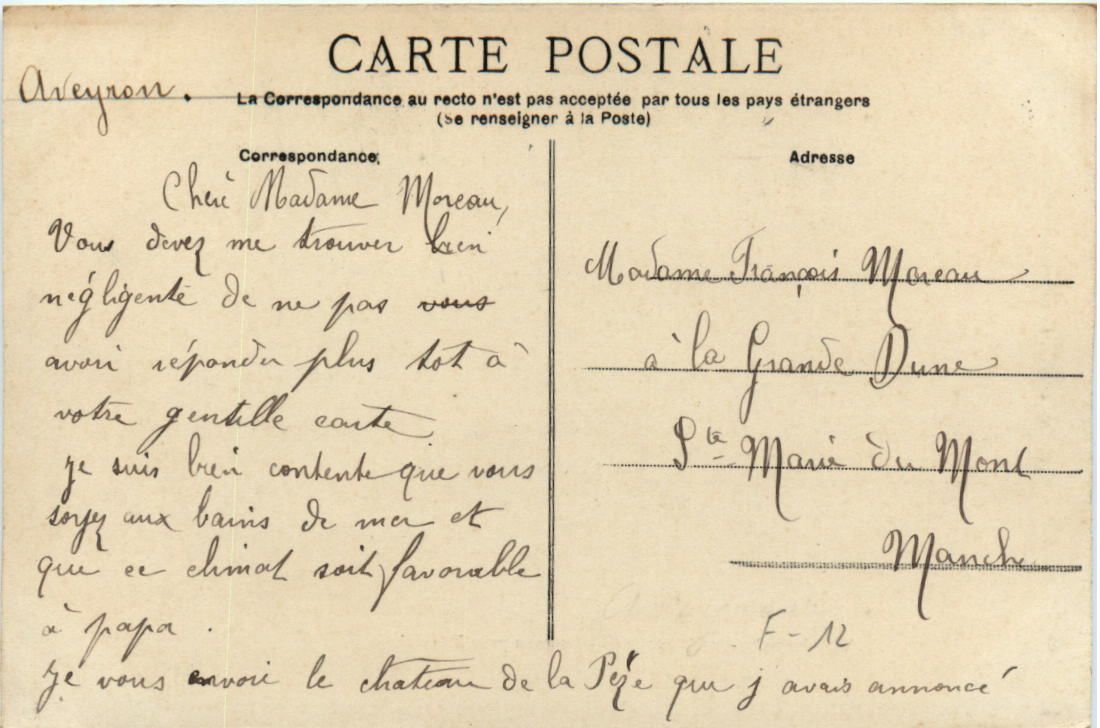 CARTE POSTALE
Aveyron.
La Correspondance au recto n'est pas acceptée par tous les pays étrangers
(Se renseigner à la Poste)
Correspondance
Cheré Madame Moreau,
Vous devez me trouver bien
négligente de ne pas vous
avoir répondu plus tot à
votre gentille carte.
Je suis bien contente que vous
soyez aux bains de mer et
que ce climat soit favorable
à papa.
Je vous envoie le chateau de la Péze que j avais annoncé
Adresse
Madame François Moreau
à la Grande Dune
Ste Marie du Mont
Manche
F-12